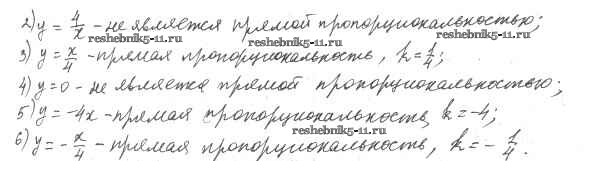 2) y = 4/x - не является прямой пропорциональностью;
reshebnik5-11.ru
reshebnik5-11.ru
3) y = x/4 - прямая пропорциональность, k = 1/4;
4) y = 0 - не является прямой пропорциональностью;
5) y = -4x - прямая пропорциональность, k = -4;
reshebnik5-11.ru
6) y = - x/4 - прямая пропорциональность, k = - 1/4.